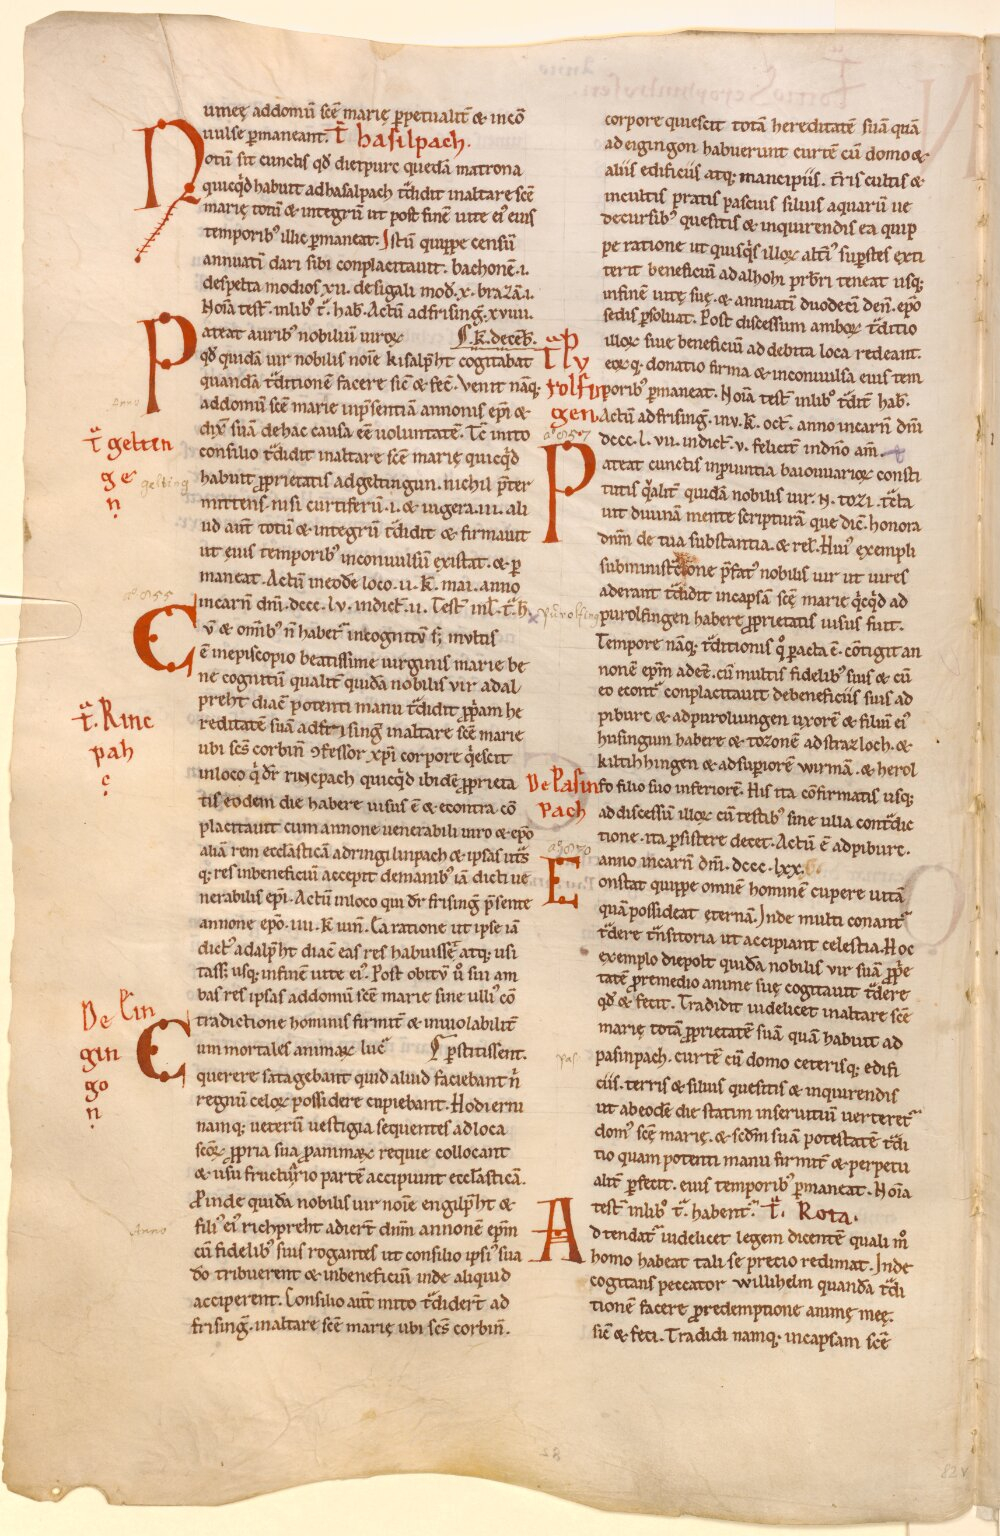 umeę addomū scē marię ꝑpetualit̄ & incō
uulse ꝑmaneant. T̄ hasilpach.
Notū sit cunctis qđ dietpurc quedā matrona
quicqđ habuit ad hasalpach tͣdidit inaltare scē
marię totū & integrū ut post finē uite ei᾽ eius
temporib᾽ illic ꝑmaneat. Istū quippe censū
annuatī dari sibi conplacitauit. bachonē .i.
despelta modios xii. desigali mođ. x. brazā .i.
Noīa test̄ inlib᾽ t̄ hab̄. Actū adfrising̅. xviiii.
Pateat aurib᾽ nobiliū uiroꝝ k. deceb̄.
qđ quidā uir nobilis noīe kisalp̄ht cogitabat
quandā tͣditionē facere sic̄ & fec̄. Venit nāq;
addomū scē marie inp̄sentiā annonis epī &
dix̄ suā de hac causa eē uoluntatē. Tc̄ inito
consilio tͣdidit inaltare scē marię quicqđ
habuit ꝓprietatis ad geltingun. nichil p̄ter
mittens. nisi curtiferū .i. & iugera .iii. ali
ud aut̄ totū & integrū tͣdidit & firmauit
ut eius temporib᾽ inconuulsū existat. & ꝑ
maneat. Actū ineodē loco. ii. k̄. mai. anno
incarn̄ dm̄i. dccc. lv. indict̄. ii. Test̄ inl̄. t̄ h̄.
Cū & omīb᾽ n̄ habet̄ incognitū s; multis
ē inepiscopio beatissime uirginis marie be
ne cognitū qualit̄ quidā nobilis vir adal
preht diac̄ potenti manu tͣdidit ꝓpͣam he
reditatē suā adfrising̅ inaltare scē marie
ubi scs̄ corbin̄ ꝯfessor xp̄i corpore qͥescit
inloco qͥ dr̄ rincpach quicqđ ibidē ꝓprieta
tis eodem die habere uisus ē & econtra cō
placitauit cum annone uenerabili uiro & ep̄o
aliā rem ecclesticā adringilinpach & ipsas utͣs
q; res inbeneficiū accepit demanib᾽ iā dicti ue
nerabilis epī. Actū inloco qui dr̄ frising̅ p̄sente
annone ep̄o. iiii. k̄ iun̄. Ea ratione ut ipse iā
dict᾽ adalp̄ht diac̄ eas res habuisset atq; usi
tass; usq; infinē uite ei᾽. Post obitū u᾽o sui am
bas res ipsas addomū scē marie sine ulli᾽ cō
tradictione hominis firmit̄ & inuiolabilit̄
Cum mortales animaꝝ luc̄ p̄stitissent.
querere satagebant quid aliud faciebant n̄
regnū celoꝝ possidere cupiebant. Hodierni
namq; ueterū uestigia sequentes ad loca
scōꝝ ꝓpria sua ꝓanimaꝝ requie collocant
& usu fructuario partē accipiunt ecclesticā.
Proinde quidā nobilis uir noīe engilp̄ht &
fili᾽ ei᾽ richpreht adiert̄ dnm̄ annonē epm̄
cū fidelib᾽ suis rogantes ut consilio ipsi᾽ sua
đo tribuerent & inbeneficiū inde aliquid
acciperent. Consilio aut̄ inito tͣdidert̄ ad
frising̅. inaltare scē marię ubi scs̄ corbin̄.
T̄ geltin
ge
n̄
Anno
gelting
aº 855
T̄. Rinc
pah
ę
De lin
gin
go
n̄
Anno
corpore quiescit totā hereditatē suā quā
ad eigingon habuerunt curtē cū domo &
aliis edificiis atq; mancipiis. tr̄ris cultis &
incultis pratis pascuis siluis aquarū de
decursib᾽ quesitis & inquirendis ea quip
pe ratione ut quisqͥs illoꝝ alt̄i᾽ suꝑstes exti
terit beneficiū ad alhohi pr̄bri teneat usq;
infinē uitę suę. & annuatī duodecī den̄. ep̄o
sedis ꝑsoluat. Post discessum amboꝝ tͣditio
illoꝝ siue beneficiū ad debita loca redeant.
eoꝝq; donatio firma & inconuulsa eius tem
porib᾽ ꝑmaneat. Noīa test̄ inlib᾽ tͣdit̄ hab̄.
Actū adfrising̅. inv. k̄. oct̄. anno incarn̄ dm̄i
dccc. l. vii. indict̄. v. felicit̄ indn̄o am̄.
Pateat cunctis inꝓuintia baiouuarioꝝ consti
tutis qͣlit̄ quidā nobilis uir. N. tozi. tͣcta
uit diuinā mente scripturā que dic̄. honora
dnm̄ de tua substantia. & rel̄. Hui᾽ exempli
subministͣtione p̄fat᾽ nobilis uir ut uires
aderant tͣdidit incapsā scē marie qͥcqđ ad
purolfingen habere ꝓprietatis uisus fuit.
Tempore nāq; tͣditionis qͦ ꝑacta ē. cōtigit an
nonē epm̄ adeē. cū multis fidelib᾽ suis & cū
eo econtͣ conplacitauit debeneficiis suis ad
pibure & ad puroluingen uxorē & filiū ei᾽
husingum habere & tozonē ad strazloch. &
kiltihhingen & ad suꝑiorē wirmā. & herol
fo filio suo inferiorē. His ita cōfirmatis usq;
ad discessū illoꝝ cū testib᾽ sine ulla contͣdic
tione. ita ꝑsistere decet. Actū ē adpibure.
anno incarn̄ dm̄i. dccc. lxx.
Constat quippe omnē hominē cupere uitā
quā possideat eternā. Inde multi conant̄
tͣdere tͣnsitoria ut accipiant celestia. Hoc
exemplo diepolt quidā nobilis vir suā ꝓpͥe
tatē ꝓremedio anime suę cogitauit tͣdere
qđ & fecit. Tradidit uidelicet inaltare scē
marię totā ꝓprietatē suā quā habuit ad
pasinpach. curtē cū domo ceterisq; edifi
ciis. terris & siluis quesitis & inquirendis
ut abeodē die statim inseruitiū uerteret̄
dom᾽ scē marię. & scđm suā potestatē tͣdi
tio quam potenti manu firmit̄ & ꝑpetu
alit̄ ꝑfecit. eius temporib᾽ ꝑmaneat. Noīa
test̄ inlib᾽ t̄. habent̄. T̄. Rota.
Adtendat̄ uidelicet legem dicentē quali mº
homo habeat tali se precio redimat. Inde
cogitans peccator willihelm quandā tͣdi
tionē facere ꝓredemptione animę meę.
sic̄ & feci. Tradidi namq; incapsam scē
T̄ Pv
rolfin
gen
aº 857
purolfing
De Pasin
pach
aº 870
pas.
82 v